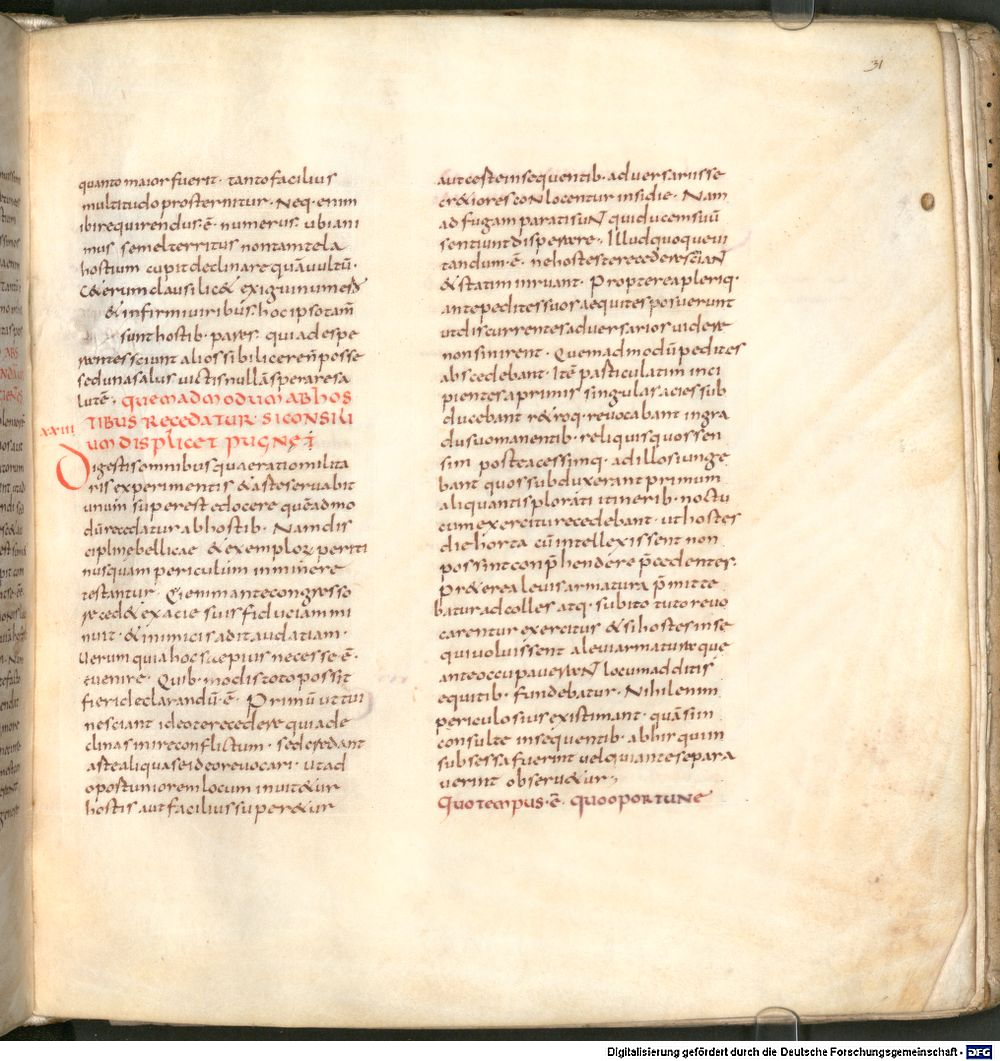 31
quanto maior fuerit · tanto facilius
multitudo prosternitur · Neq · enim
ibi requirendus · ē · numerus · ubi ani
mus semel territus non tam tela
hostium cupit declinare quā uultū ·
C&erum clausi lic& exigui numero
& infirmi uiribus · hoc ipso tam̄
sunt hostib · pares · quia despe
rantes sciunt aliossibi licere n̄ posse
sed una salus uictis nullā sperare sa
lutē · quemadmodum ab hos
TIBUS RECEDATUR · SI CONSILI
XXIII
um displicet pugnę
Digestis omnibus quae ratio milita
ris experimentis & arte seruabit
unum superest edocere quēadmo
dū recedatur ab hostib · Nam dis
ciplinę bellicae & exemploꝝ periti
nusquam periculūm imminere
testantur · Qi enim ante congresso
reced& ex acie suis fiduciam mi
nuit · & inimicis addit audatiam ·
Uerum quia hoc saepius necesse · ē ·
euenire · Quib · modis toto possit
fieri declarandū · ē · Primū ut tui
nesciant ideo te recedere quia de
clinas inire conflictum · sed credant
arte aliqua se ideo reuocari · ut ad
oportuniorem locum inuit&ur
hostis aut facilius super&ur
aut certe insequentib · aduersariis se
cr&iores conlocentur insidie · Nam
ad fugam parati suNt qui ducem suū
sentiunt disperare · Illud quoque ui
tandum · ē · ne hostes te recedere sciaNt
& statim inruant · Propterea pleriq ·
ante pedites suos aequites posuerunt
ut discurrentes aduersarios uidere
non sinirent · Quemadmodū pedites
abscedebant · Itē particulatim inci
pientes a primis singulas acies sub
ducebant r&roq · reuocabant in gra
du suo manentib · reliquis quos sen
sim postea cessimq · ad illos iunge
bant quos subduxerant primum
aliquantis plorati itinerib · noctu
cum exercitu recedebant · ut hostes
die horta cū intellexissent non
possint conp̄hendere p̄cedentes ·
Pr&erea leuis armatura p̄mitte
batur ad colles atq · subito tuto reuo
carentur exercitus & si hostes inse
qui uoluissent a leui armatura que
ante occupauerant locum additis
equitib · fundebatur · Nihil enim
periculosius existimant · quā si in
consulte insequentib · ab hir qui in
subsessa fuerint uel qui ante separa
uerint obseru&ur ·
QUO TEMPUS · Ē · QUO OPORTUNE
Digitalisierung gefördert durch die Deutsche Forschungsgemeinschaft - DFG